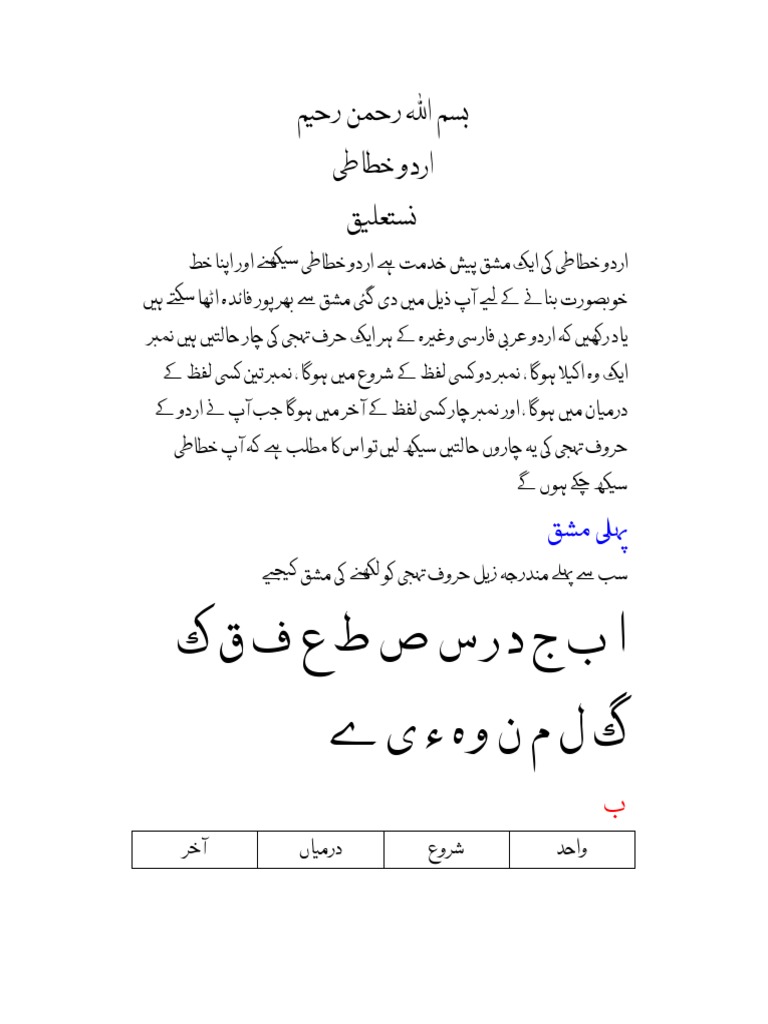 بسم اللہ رحمن رحیم
اردو خطاطی
نستعلیق
اردو خطاطی کی ایک مشق پیش خدمت ہے اردو خطاطی سیکھنے اور اپنا خط
خوبصورت بنانے کے لیے آپ ذیل میں دی گئی مشق سے بھرپور فائدہ اٹھا سکتے ہیں
یاد رکھیں کہ اردو عربی فارسی وغیرہ کے ہر ایک حرف تہجی کی چار حالتیں ہیں نمبر
ایک وہ اکیلا ہوگا۔ نمبر دو کسی لفظ کے شروع میں ہوگا۔ نمبر تین کسی لفظ کے
درمیان میں ہوگا۔ اور نمبر چار کسی لفظ کے آخر میں ہوگا جب آپ نے اردو کے
حروف تہجی کی یہ چاروں حالتیں سیکھ لیں تو اس کا مطلب ہے کہ آپ خطاطی
سیکھ چکے ہوں گے
پہلی مشق
سب سے پہلے مندرجہ زیل حروف تہجی کو لکھنے کی مشق کیجیے
ا ب ج د ر س ص ط ع ف ق ک
گ ل م ن و ہ ء ی ے
ب
واحد شروع درمیاں آخر